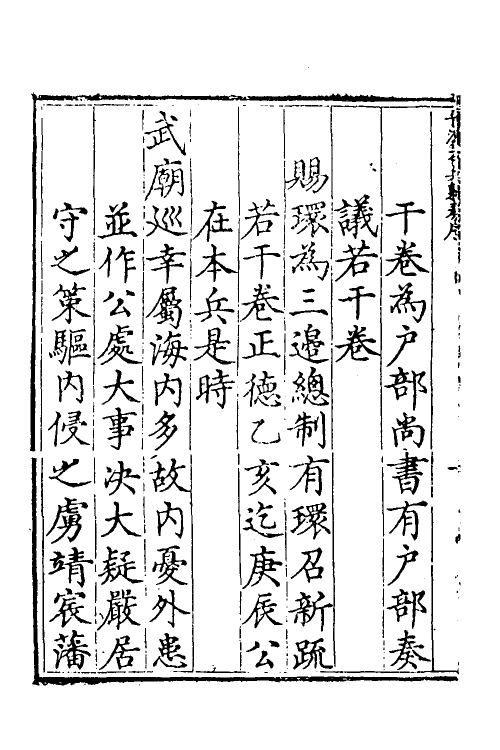 干卷為户部尚書有户部奏
議若干卷
賜環為三邉總制有環召新疏
若干卷正德乙亥迄庚辰公
在本兵是時
武廟巡幸屬海内多故内憂外患
並作公處大事决大疑嚴居
守之策驅内侵之虜靖宸藩